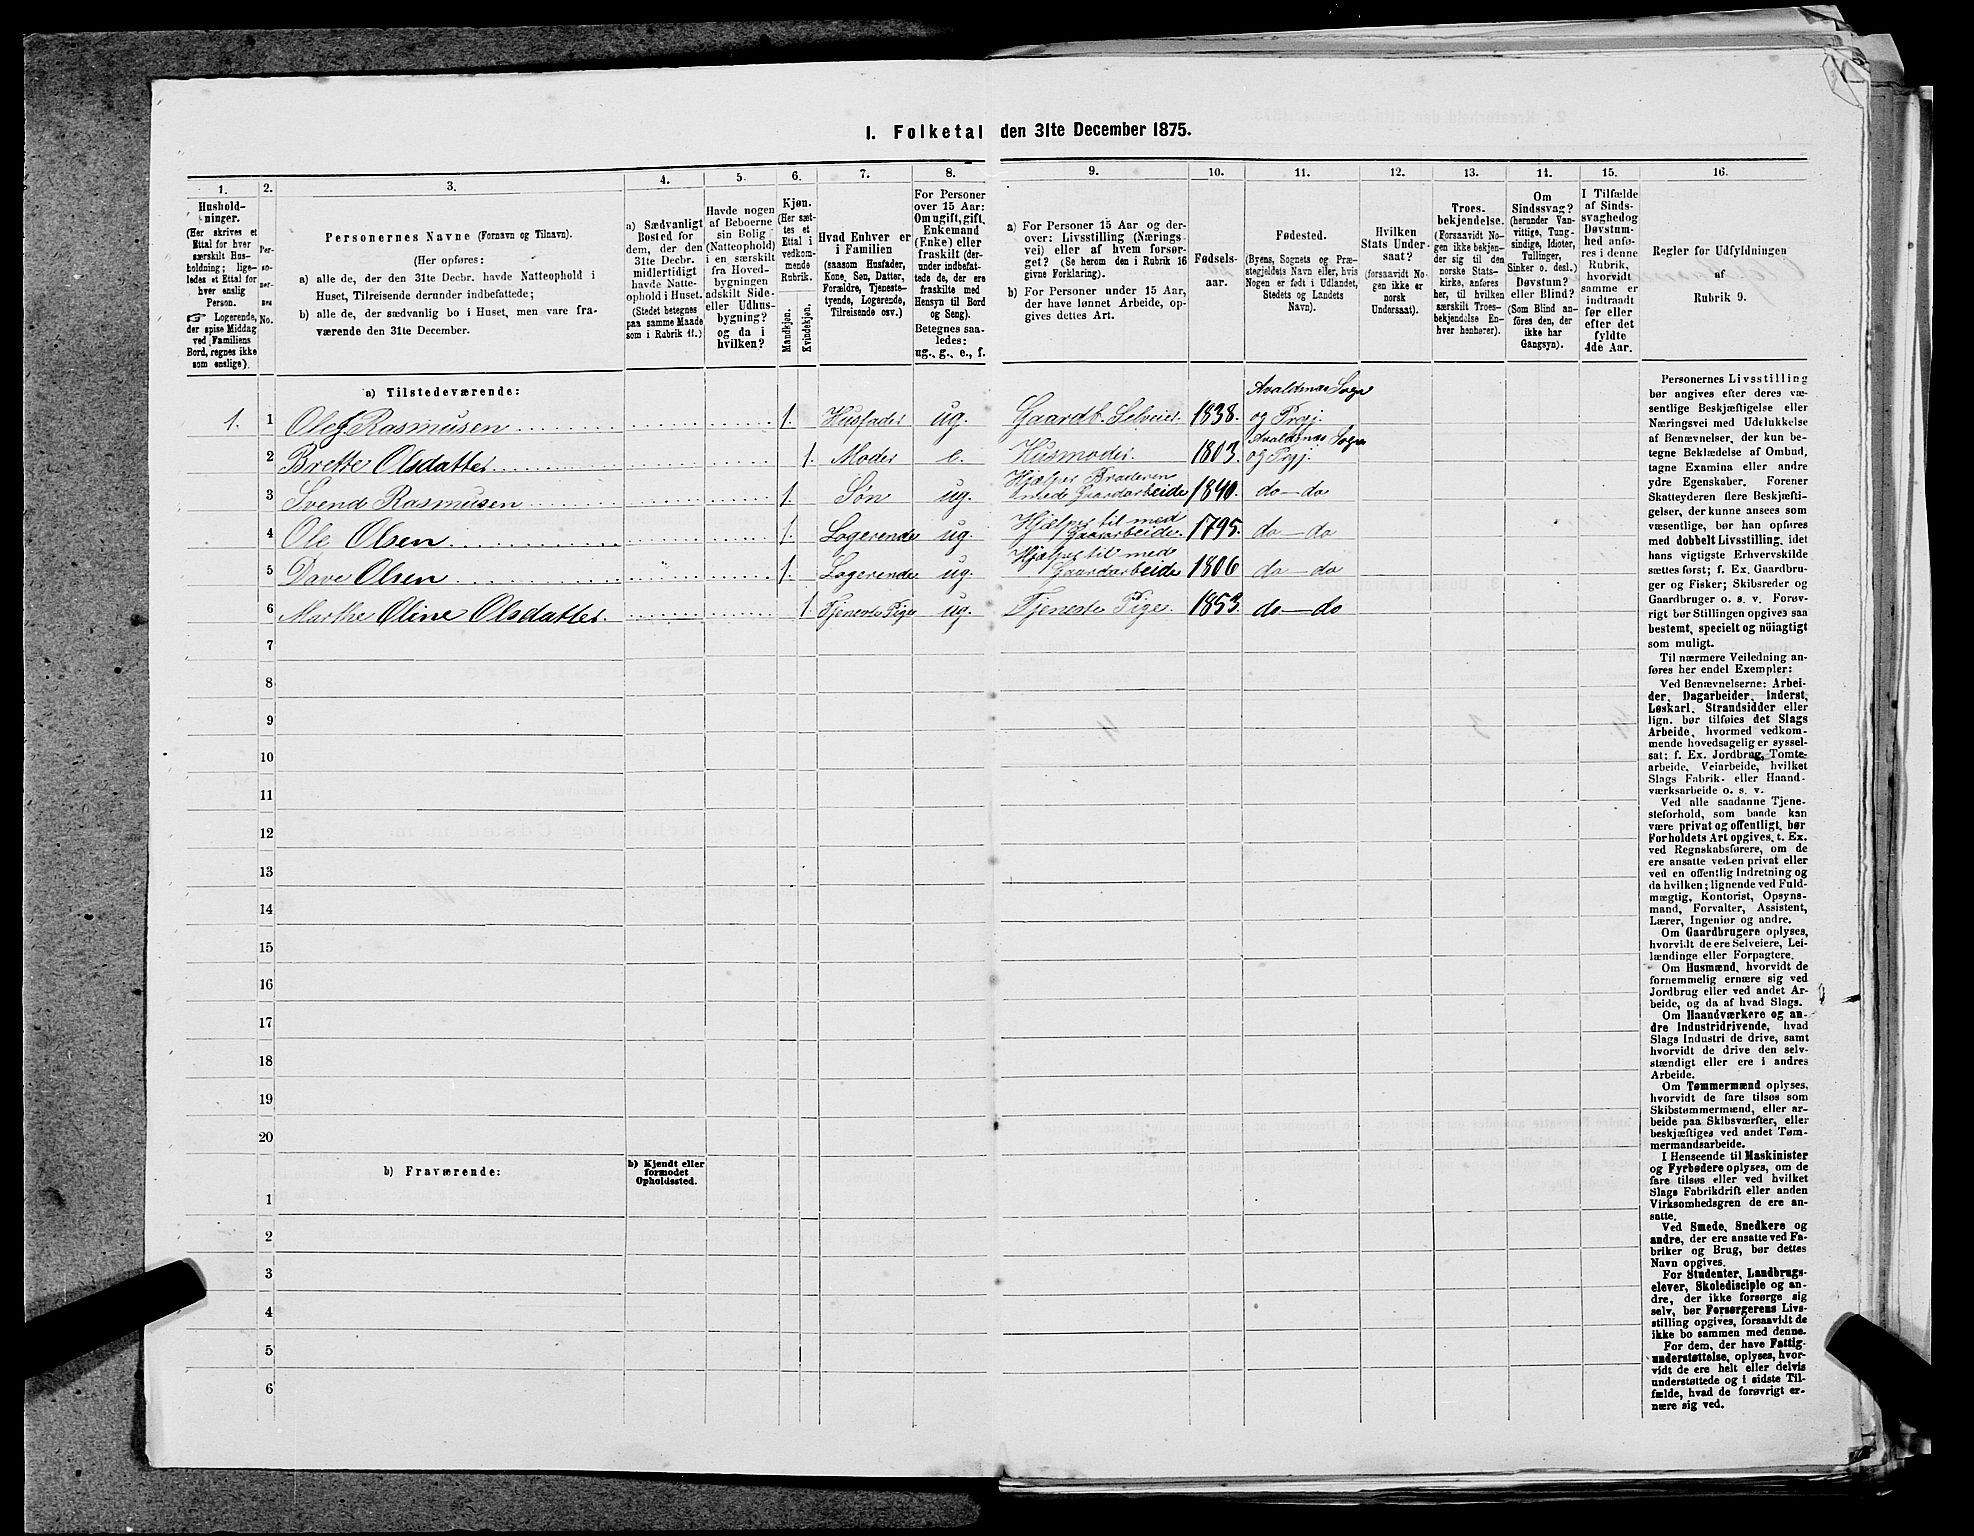 I. Folketal den 31te December 1875.
1. 2. 3. 4. 5. 6. 7. 8. 9. 10. 11. 12. 13. 14. 15. 16.
Hushold-
ninger.
(Her skrives et
Ettal for hver
særskilt Hus-
holdning; lige-
ledes et Ettal for
hver enslig
Person.
☞ Logerende,
der spise Middag
ved Familiens
Bord, regnes ikke
som enslige).
Per-
so-
ner-
nes
No.
Personernes Navne (Fornavn og Tilnavn).
(Her opføres:
a) alle de, der den 31te Decbr. havde Natteophold i
Huset, Tilreisende derunder indbefattede;
b) alle de, der sædvanlig bo i Huset, men vare fra-
værende den 31te December.
a) Sædvanligt
Bosted for
dem, der den
31te Decbr.
midlertidigt
havde Natte-
ophold i Huset.
(Stedet betegnes
paa samme Maade
som i Rubrik 11.)
Havde nogen
af Beboerne
sin Bolig
(Natteophold)
i en særskilt
fra Hoved-
bygningen
adskilt Side-
eller Udhus-
bygning?
og da i
hvilken?
Kjøn.
(Her sæt-
tes et
Ettal i
vedkom-
mende
Rubrik.
Mandkjøn.
Kvindekjøn.
Hvad Enhver er
i Familien
(saasom Husfader,
Kone, Søn, Datter,
Forældre, Tjeneste-
tyende, Logerende,
Tilreisende osv.)
For Personer
over 15 Aar:
Om ugift, gift,
Enkemand
(Enke) eller
fraskilt (der-
under indbefat-
tede de, der ere
fraskilte med
Hensyn til Bord
og Seng).
Betegnes saa-
ledes:
ug., g., e., f.
a) For Personer 15 Aar og der-
over: Livsstilling (Nærings-
vei) eller af hvem forsør-
get? (Se herom den i Rubrik 16
givne Forklaring).
b) For Personer under 15 Aar,
der have lønnet Arbeide, op-
gives dettes Art.
Fødsels-
aar.
Fødested.
(Byens, Sognets og Præ-
stegjeldets Navn eller, hvis
Nogen er født i Udlandet,
Stedets og Landets
Navn).
Hvilken
Stats Under-
saat?
(forsaavidt No-
gen ikke er
norsk
Undersaat).
Troes-
bekjendelse.
(Forsaavidt No-
gen ikke bekjen-
der sig til den
norske Stats-
kirke, anføres
her, til hvilken
særskilt Troes-
bekjendelse En-
hver henhører).
Om
Sindssvag?
(herunder Van-
vittige, Tung-
sindige, Idioter,
Tullinger,
Sinker o. desl.)
Døvstum?
eller Blind?
(Som Blind an-
føres den, der
ikke har
Gangsyn).
I Tilfælde
af Sinds-
svaghed og
Døvstum-
hed anfø-
res i denne
Rubrik,
hvorvidt
samme er
indtraadt
før eller
efter det
fyldte
4de Aar.
Regler for Udfyldningen
af
Rubrik 9.
a) Tilstedeværende:
1. 1 Ole Rasmusen 1. Husfader ug. Gaardb. Selveier. 1838. Avaldsnes Sogn og Prgj.
2 Brette Olsdatter 1. Moder e. Husmoder. 1803. Avaldsnes Sogn og Prgj.
3 Svend Rasmusen 1. Søn ug. Hjælper Broderen med Gaardarbeide 1840. do—do
4 Ole Olsen 1. Logerende ug. Hjælper til med Gaardarbeide. 1795. do—do
5 Dave Olsen 1. Logerende ug. Hjælper til med Gaardarbeide 1806 do—do
6 Marthe Oline Olsdatter. 1. Tjeneste Pige ug. Tjeneste Pige. 1853. do—do
7
8
9
10
11
12
13
14
15
16
17
18
19
20
b) Fraværende:
b) Kjendt eller
formodet
Opholdssted.
1
2
3
4
5
6
Personernes Livsstilling
bør angives efter deres væ-
sentlige Beskjæftigelse eller
Næringsvei med Udelukkelse
af Benævnelser, der kun be-
tegne Beklædelse af Ombud,
tagne Examina eller andre
ydre Egenskaber. Forener
Skatteyderen flere Beskjæfti-
gelser, der kunne ansees som
væsentlige, bør han opføres
med dobbelt Livsstilling, idet
hans vigtigste Erhvervskilde
sættes først; f. Ex. Gaardbru-
ger og Fisker; Skibsreder og
Gaardbruger o. s. v. Forøv-
rigt bør Stillingen opgives saa
bestemt, specielt og nöiagtigt
som muligt.
Til nærmere Veiledning an-
føres her endel Exempler:
Ved Benævnelserne: Arbei-
der, Dagarbeider, Inderst,
Løskarl, Strandsidder eller
lign. bør tilføies det Slags
Arbeide, hvormed vedkom-
mende hovedsagelig er syssel-
sat; f. Ex. Jordbrug, Tomte-
arbeide, Veiarbeide, hvilket
Slags Fabrik- eller Haand-
værksarbeide o. s. v.
Ved alle saadanne Tjene-
steforhold, som baade kan
være privat og offentligt, bør
Forholdets Art opgives, t. Ex.
ved Regnskabsførere, om de
ere ansatte ved en privat eller
ved en offentlig Indretning og
da hvilken; lignende ved Fuld-
mægtig, Kontorist, Opsyns-
mand, Forvalter, Assistent,
Lærer, Ingeniør og andre.
Om Gaardbrugere oplyses,
hvorvidt de ere Selveiere, Lei-
lændinge eller Forpagtere.
Om Husmænd, hvorvidt de
fornemmelig ernære sig ved
Jordbrug eller ved andet Ar-
beide, og da af hvad Slags.
Om Haandværkere og an-
dre Industridrivende, hvad
Slags Industri de drive, samt
hvorvidt de drive den selv-
stændigt eller ere i andres
Arbeide.
Om Tømmermænd oplyses,
hvorvidt de fare tilsøs som
Skibstømmermænd, eller ar-
beide paa Skibsværfter, eller
beskjæftiges ved andet Tøm-
mermandsarbeide.
I Henseende til Maskinister
og Fyrbødere oplyses, om de
fare tilsøs eller ved hvilket
Slags Fabrikdrift eller anden
Virksomhedsgren de ere an-
satte.
Ved Smede, Snedkere og
andre, der ere ansatte ved Fa-
briker og Brug, bør dettes
Navn opgives.
For Studenter, Landbrugs-
elever, Skoledisciple og an-
dre, der ikke forsørge sig
selv, bør Forsørgerens Livs-
stilling opgives, forsaavidt de
ikke bo sammen med denne.
For dem, der have Fattig-
understøttelse, oplyses, hvor-
vidt de ere helt eller delvis
understøttede og i sidste Til-
fælde, hvad de forøvrigt er-
nære sig ved.